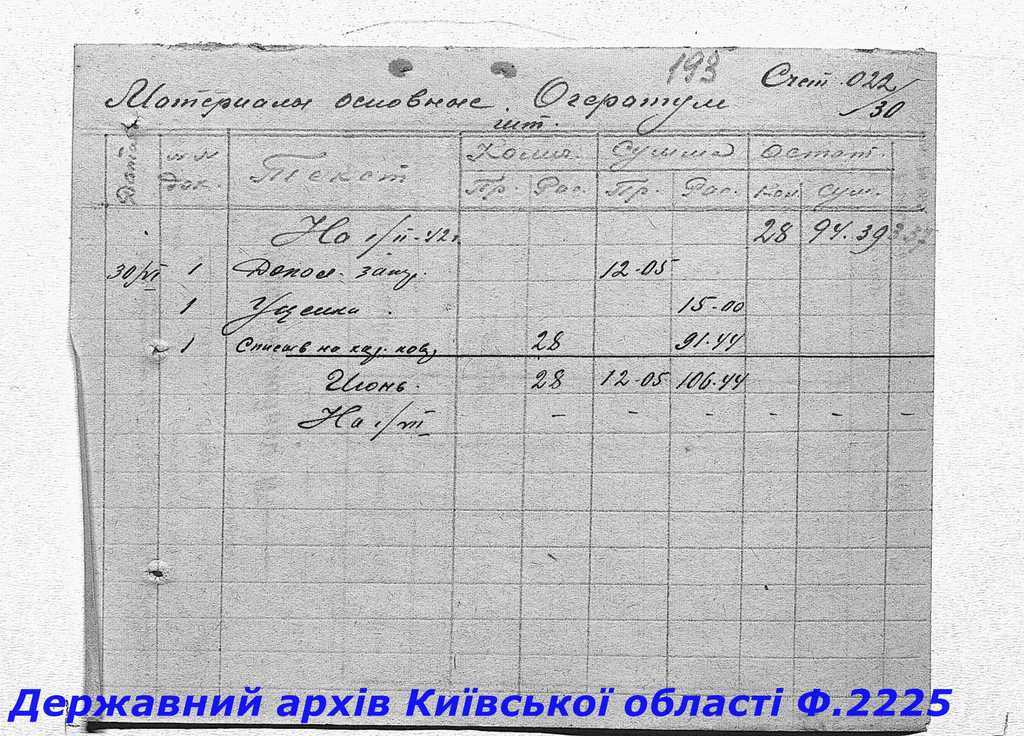 193
Счет 022/30
Материалы основные. Огератум
шт.
Дата NN док. Текст Колич. Сумма Остат.
Пр. Рас. Пр. Рас. Кол. сум.
На 1/II-42г. 28 94.39 3.37
30/VI 1 Допол. 12-05
1 Уценка 15-00
1 28 91-44
Июнь. 28 12-05 106-44
На 1/VII - - - - - -
Державний архів Київської області Ф.2225